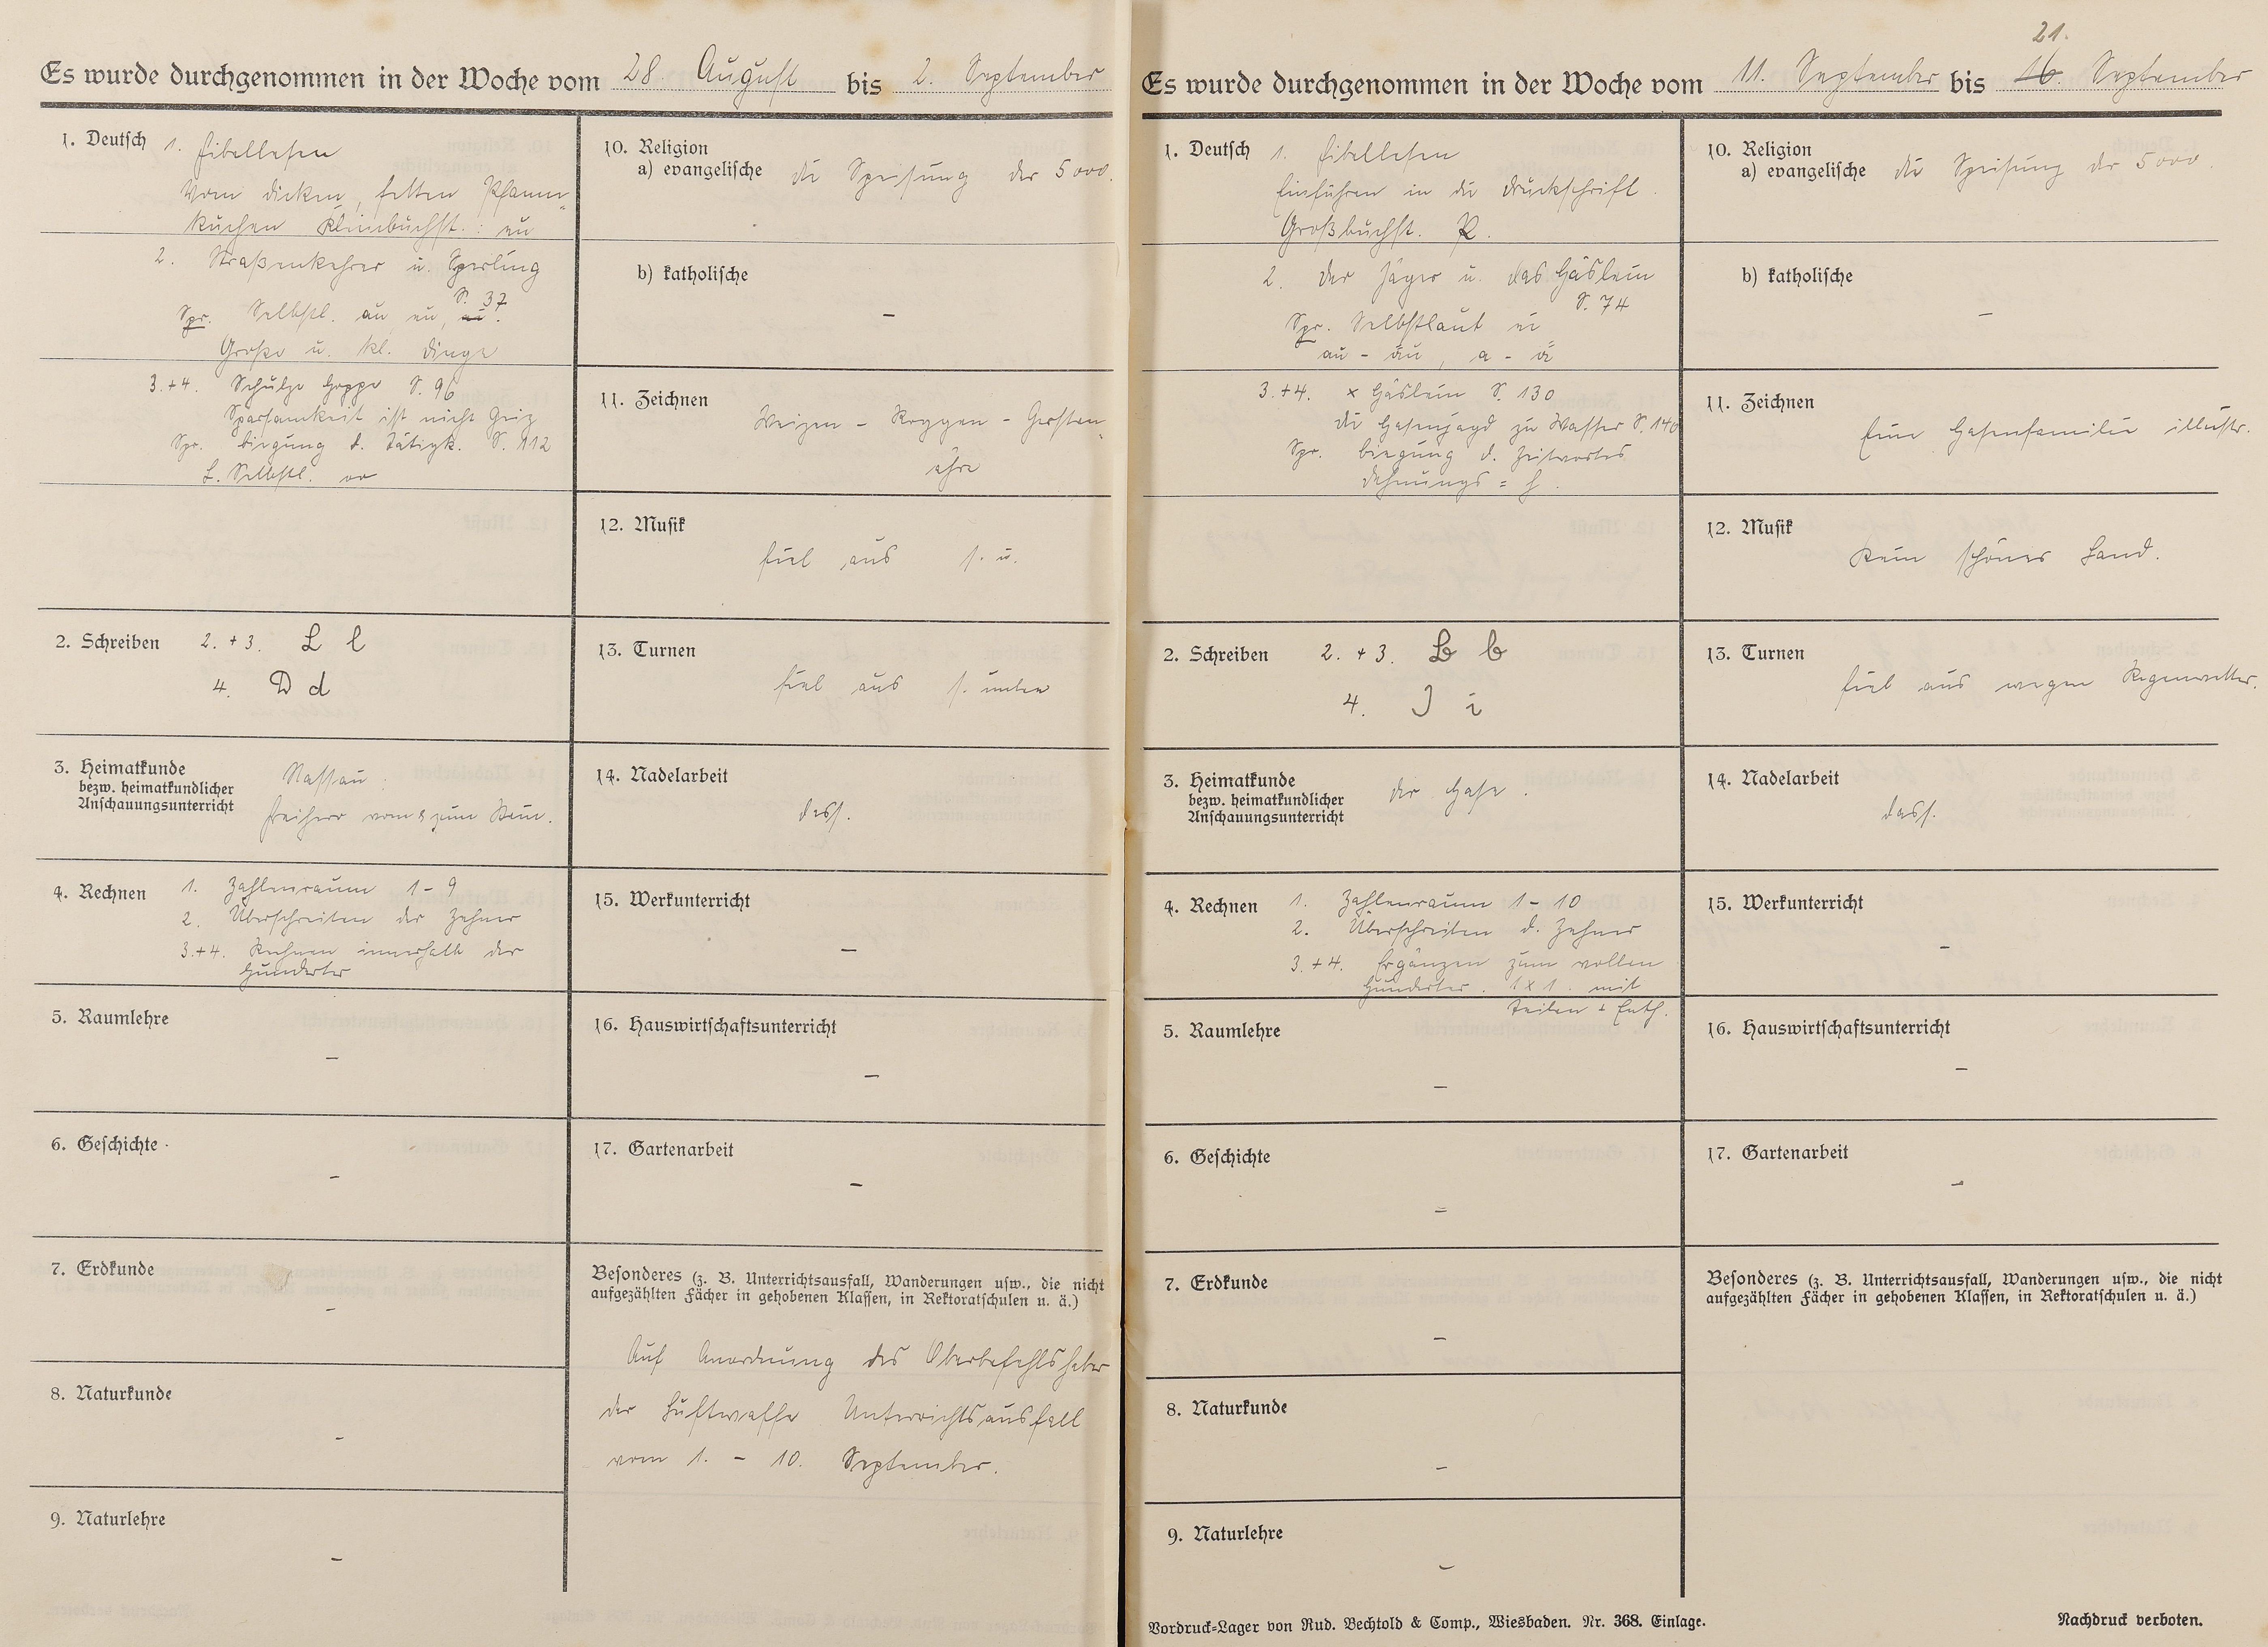 Es wurde durchgenommen in der Woche vom 28. August bis 2. September
1. Deutsch 1. Fibellesen
Vom dicken, fetten Pfann-
kuchen Kleinbuchst.: eu
2. Straßenkehrer u. Sperling
S. 37
Spr. Selbstl. au, eu,
Große u. kl. Dinge
3.+4. Schulze Hoppe S. 96
Sparsamkeit ist nicht Geiz
Spr. Biegung d. Tätigk. S. 112
L. Selbstl. oo
2. Schreiben 2. + 3. L l
4. D d
3. Heimatkunde
bezw. heimatkundlicher
Anschauungsunterricht
Nassau:
Freiherr vom & zum Stein.
4. Rechnen 1. Zahlenraum 1-9
2. Überschreiten der Zehner
3.+4. Rechnen innerhalb der
Hunderter
5. Raumlehre
–
6. Geschichte
–
7. Erdkunde
–
8. Naturkunde
–
9. Naturlehre
–
10. Religion
a) evangelische die Speisung der 5000.
b) katholische
–
11. Zeichnen
Weizen - Roggen - Gersten-
ähre
12. Musik
fiel aus s. u.
13. Turnen
fiel aus s. unten
14. Nadelarbeit
dess.
15. Werkunterricht
–
16. Hauswirtschaftsunterricht
–
17. Gartenarbeit
–
Besonderes (z. B. Unterrichtsausfall, Wanderungen usw., die nicht
aufgezählten Fächer in gehobenen Klassen, in Rektoratschulen u. ä.)
Auf Anordnung des Oberbefehlshaber
der Luftwaffe Unterrichtsausfall
vom 1. - 10. September.
21.
Es wurde durchgenommen in der Woche vom 11. September bis 16. September
1. Deutsch 1. Fibellesen
Einführen in die Druckschrift.
Großbuchst. R.
2. Der Jäger u. das Häslein
S. 74
Spr. Selbstlaut ei
au - äu, a - ä
3.+4. x Häslein S. 130
die Hasenjagd zu Wasser S. 140
Spr. Biegung d. Zeitwortes
Dehnungs = h.
2. Schreiben 2. + 3. B b
4. J i
3. Heimatkunde
bezw. heimatkundlicher
Anschauungsunterricht
Der Hase.
4. Rechnen 1. Zahlenraum 1-10
2. Überschreiten d. Zehner
3.+4. Ergänzen zum vollen
Hunderter. 1x1. mit
Teilen + Enth.
5. Raumlehre
–
6. Geschichte
–
7. Erdkunde
–
8. Naturkunde
–
9. Naturlehre
–
10. Religion
a) evangelische die Speisung der 5000.
b) katholische
–
11. Zeichnen
Eine Hasenfamilie illustr.
12. Musik
Kein schöner Land.
13. Turnen
fiel aus wegen Regenwetter.
14. Nadelarbeit
dass.
15. Werkunterricht
–
16. Hauswirtschaftsunterricht
–
17. Gartenarbeit
–
Besonderes (z. B. Unterrichtsausfall, Wanderungen usw., die nicht
aufgezählten Fächer in gehobenen Klassen, in Rektoratschulen u. ä.)
Vordruck-Lager von Rud. Bechtold & Comp., Wiesbaden. Nr. 368. Einlage.
Nachdruck verboten.